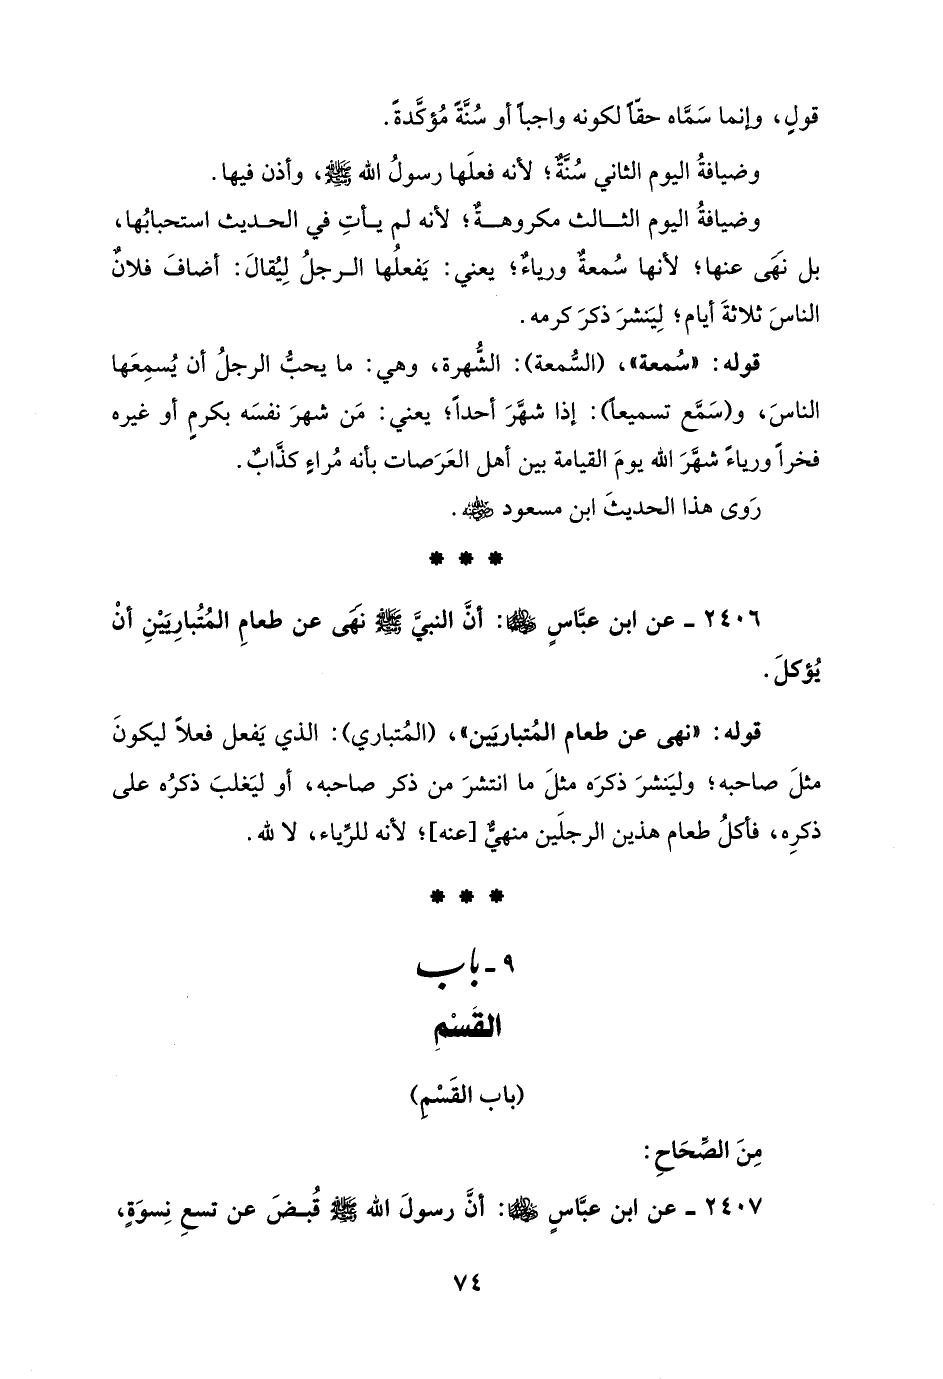 قولٍ، وإنما سَمَّاه حقّاً لكونه واجباً أو سُنَّةً مُؤكَّدةً.
وضيافةُ اليوم الثاني سُنَّةٌ؛ لأنه فعلَها رسولُ الله ﷺ، وأذن فيها.
وضيافةُ اليوم الثالث مكروهةٌ؛ لأنه لم يأتِ في الحديث استحبابُها،
بل نهَى عنها؛ لأنها سُمعةٌ ورياءٌ؛ يعني: يَفعلُها الرجلُ لِيُقالَ: أضافَ فلانٌ
الناسَ ثلاثةَ أيام؛ لِيَنشرَ ذكرَ كرمه.
قوله: «سُمعة»، (السُّمعة): الشُّهرة، وهي: ما يحبُّ الرجلُ أن يُسمِعَها
الناسَ، و(سَمَّع تسميعاً): إذا شهَّرَ أحداً؛ يعني: مَن شهرَ نفسَه بكرمٍ أو غيره
فخراً ورياءً شهَّرَ الله يومَ القيامة بين أهل العَرَصات بأنه مُراءٍ كذَّابٌ.
رَوى هذا الحديثَ ابن مسعود ﷺ.
* * *
٢٤٠٦ - عن ابن عبَّاسٍ ﷺ: أنَّ النبيَّ ﷺ نهَى عن طعامِ المُتُبارِيَيْنِ أنْ
يُؤكلَ.
قوله: «نهى عن طعام المُتباريَين»، (المُتباري): الذي يَفعل فعلاً ليكونَ
مثلَ صاحبه؛ وليَنشرَ ذكرَه مثلَ ما انتشرَ من ذكر صاحبه، أو ليَغلبَ ذكرُه على
ذكرِه، فأكلُ طعام هذين الرجلَين منهيٌّ [عنه]؛ لأنه للرِّياء، لا لله.
* * *
٩ - باب
القَسْمِ
(باب القَسْمِ)
مِنَ الصِّحَاحِ:
٢٤٠٧ - عن ابن عبَّاسٍ ﷺ: أنَّ رسولَ الله ﷺ قُبضَ عن تسعِ نِسوَةٍ،
٧٤